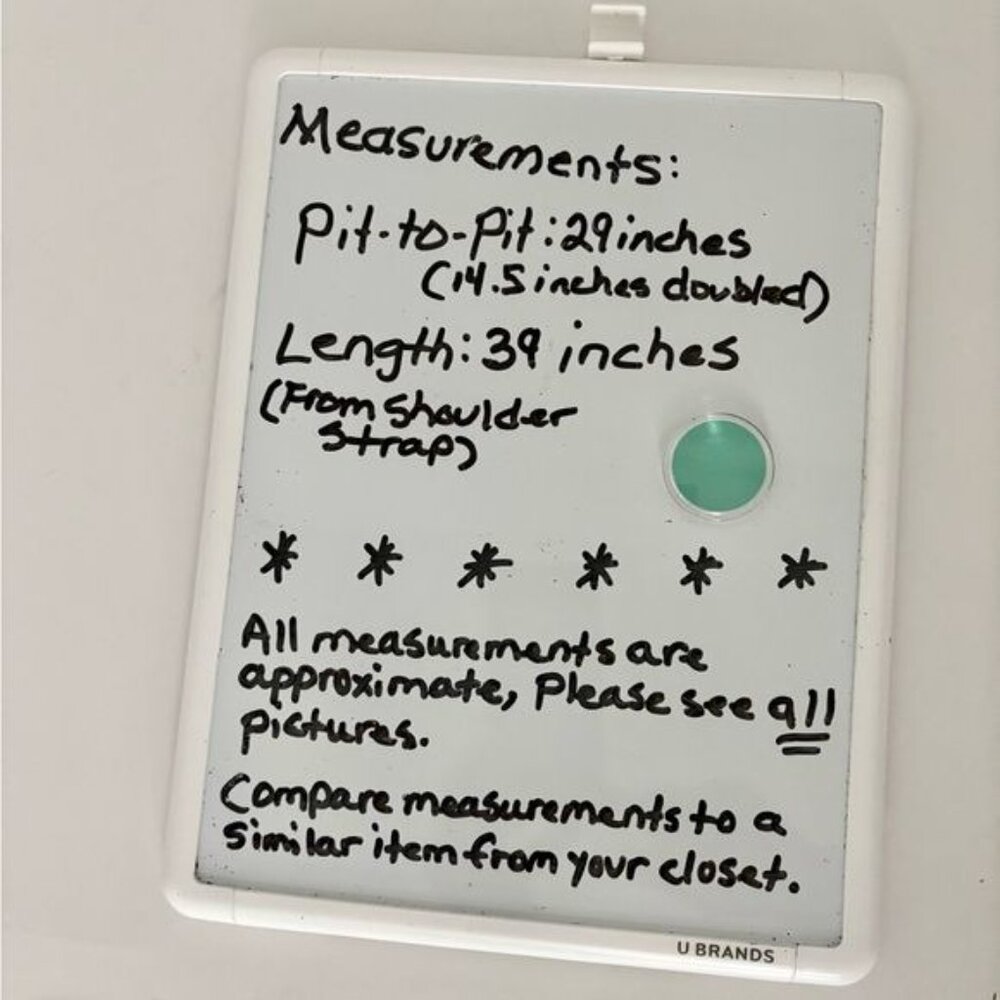 Measurements:
Pit-to-Pit: 29 inches
(14.5 inches doubled)
Length: 39 inches
(From shoulder
strap)
* * * * * *
All measurements are
approximate, Please see all
pictures.
Compare measurements to a
similar item from your closet.
U BRANDS